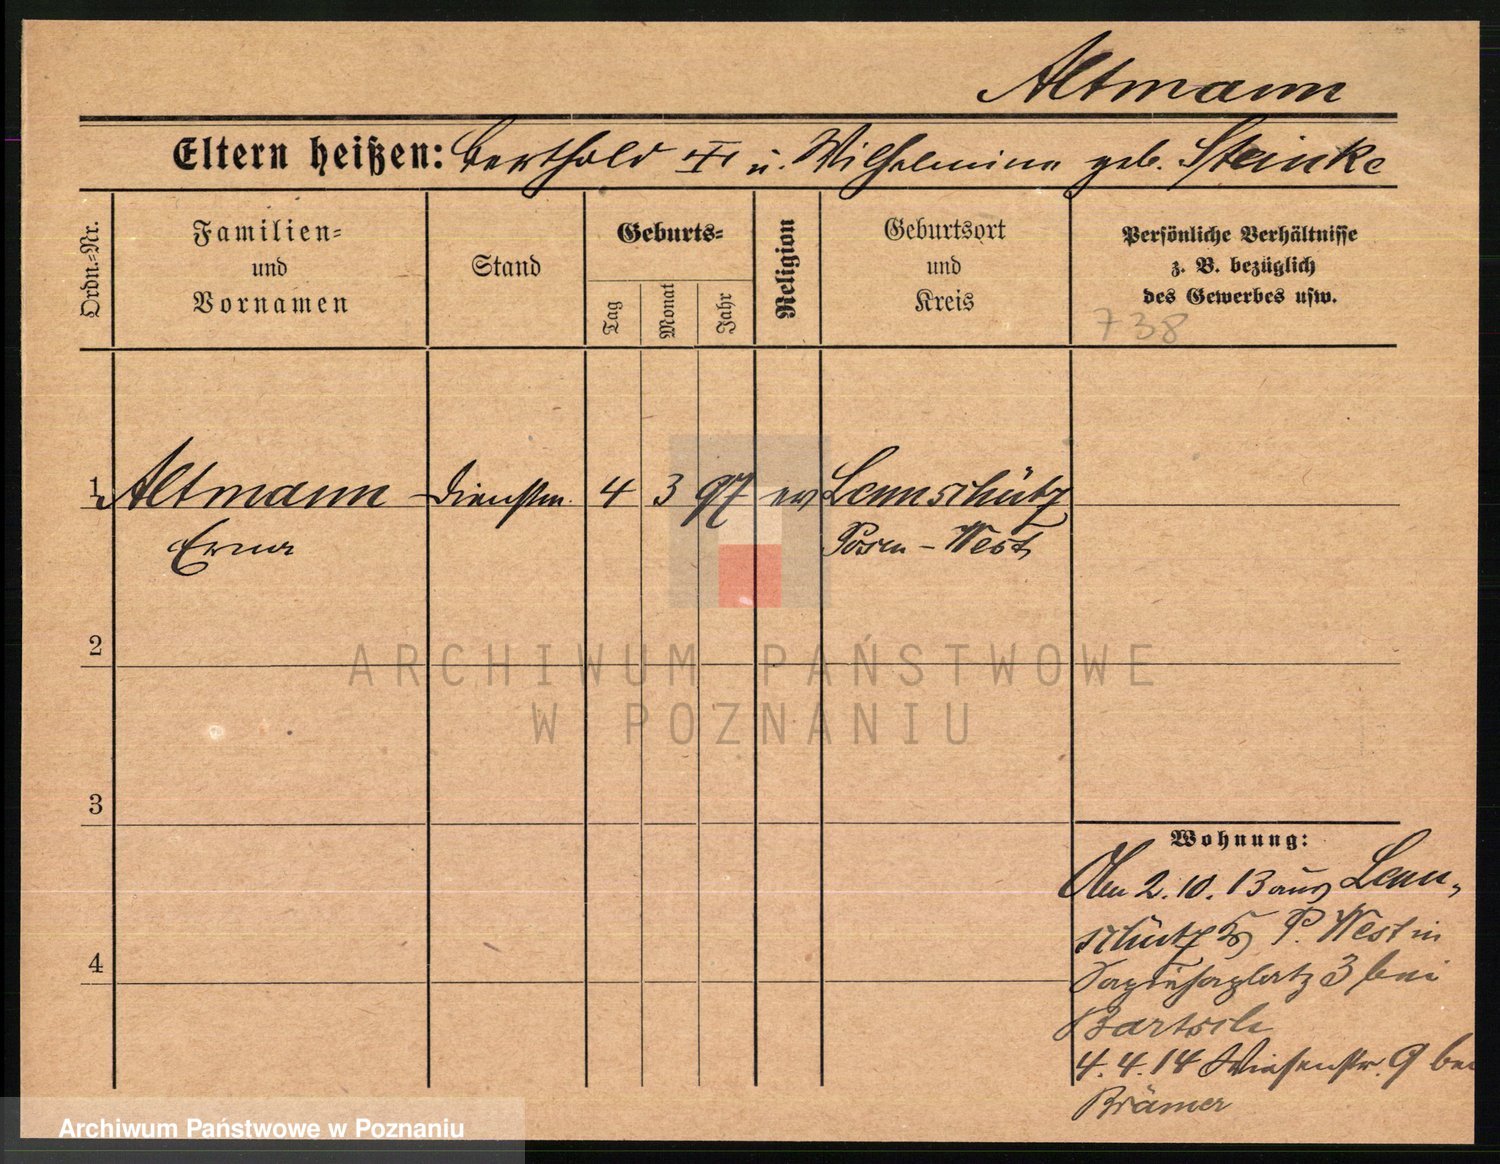 Altmann
Eltern heißen: Berthold III u. Wilhelmine geb. Steinke
Ordn.-Nr.
Familien-
und
Vornamen
Stand
Geburts-
Tag
Monat
Jahr
Religion
Geburtsort
und
Kreis
Persönliche Verhältnisse
z. B. bezüglich
des Gewerbes usw.
738
1 Altmann Dienstm. 4 3 97 ev Lennschütz
Erna Posen-West
2
ARCHIWUM PAŃSTWOWE
W POZNANIU
3
Wohnung:
2.10.13 aus Lenn-
schütz P. West in
Sapiehaplatz 3 bei
4
Bartsch
4.4.14 Wiesenstr. 9 bei
Brämer
Archiwum Państwowe w Poznaniu